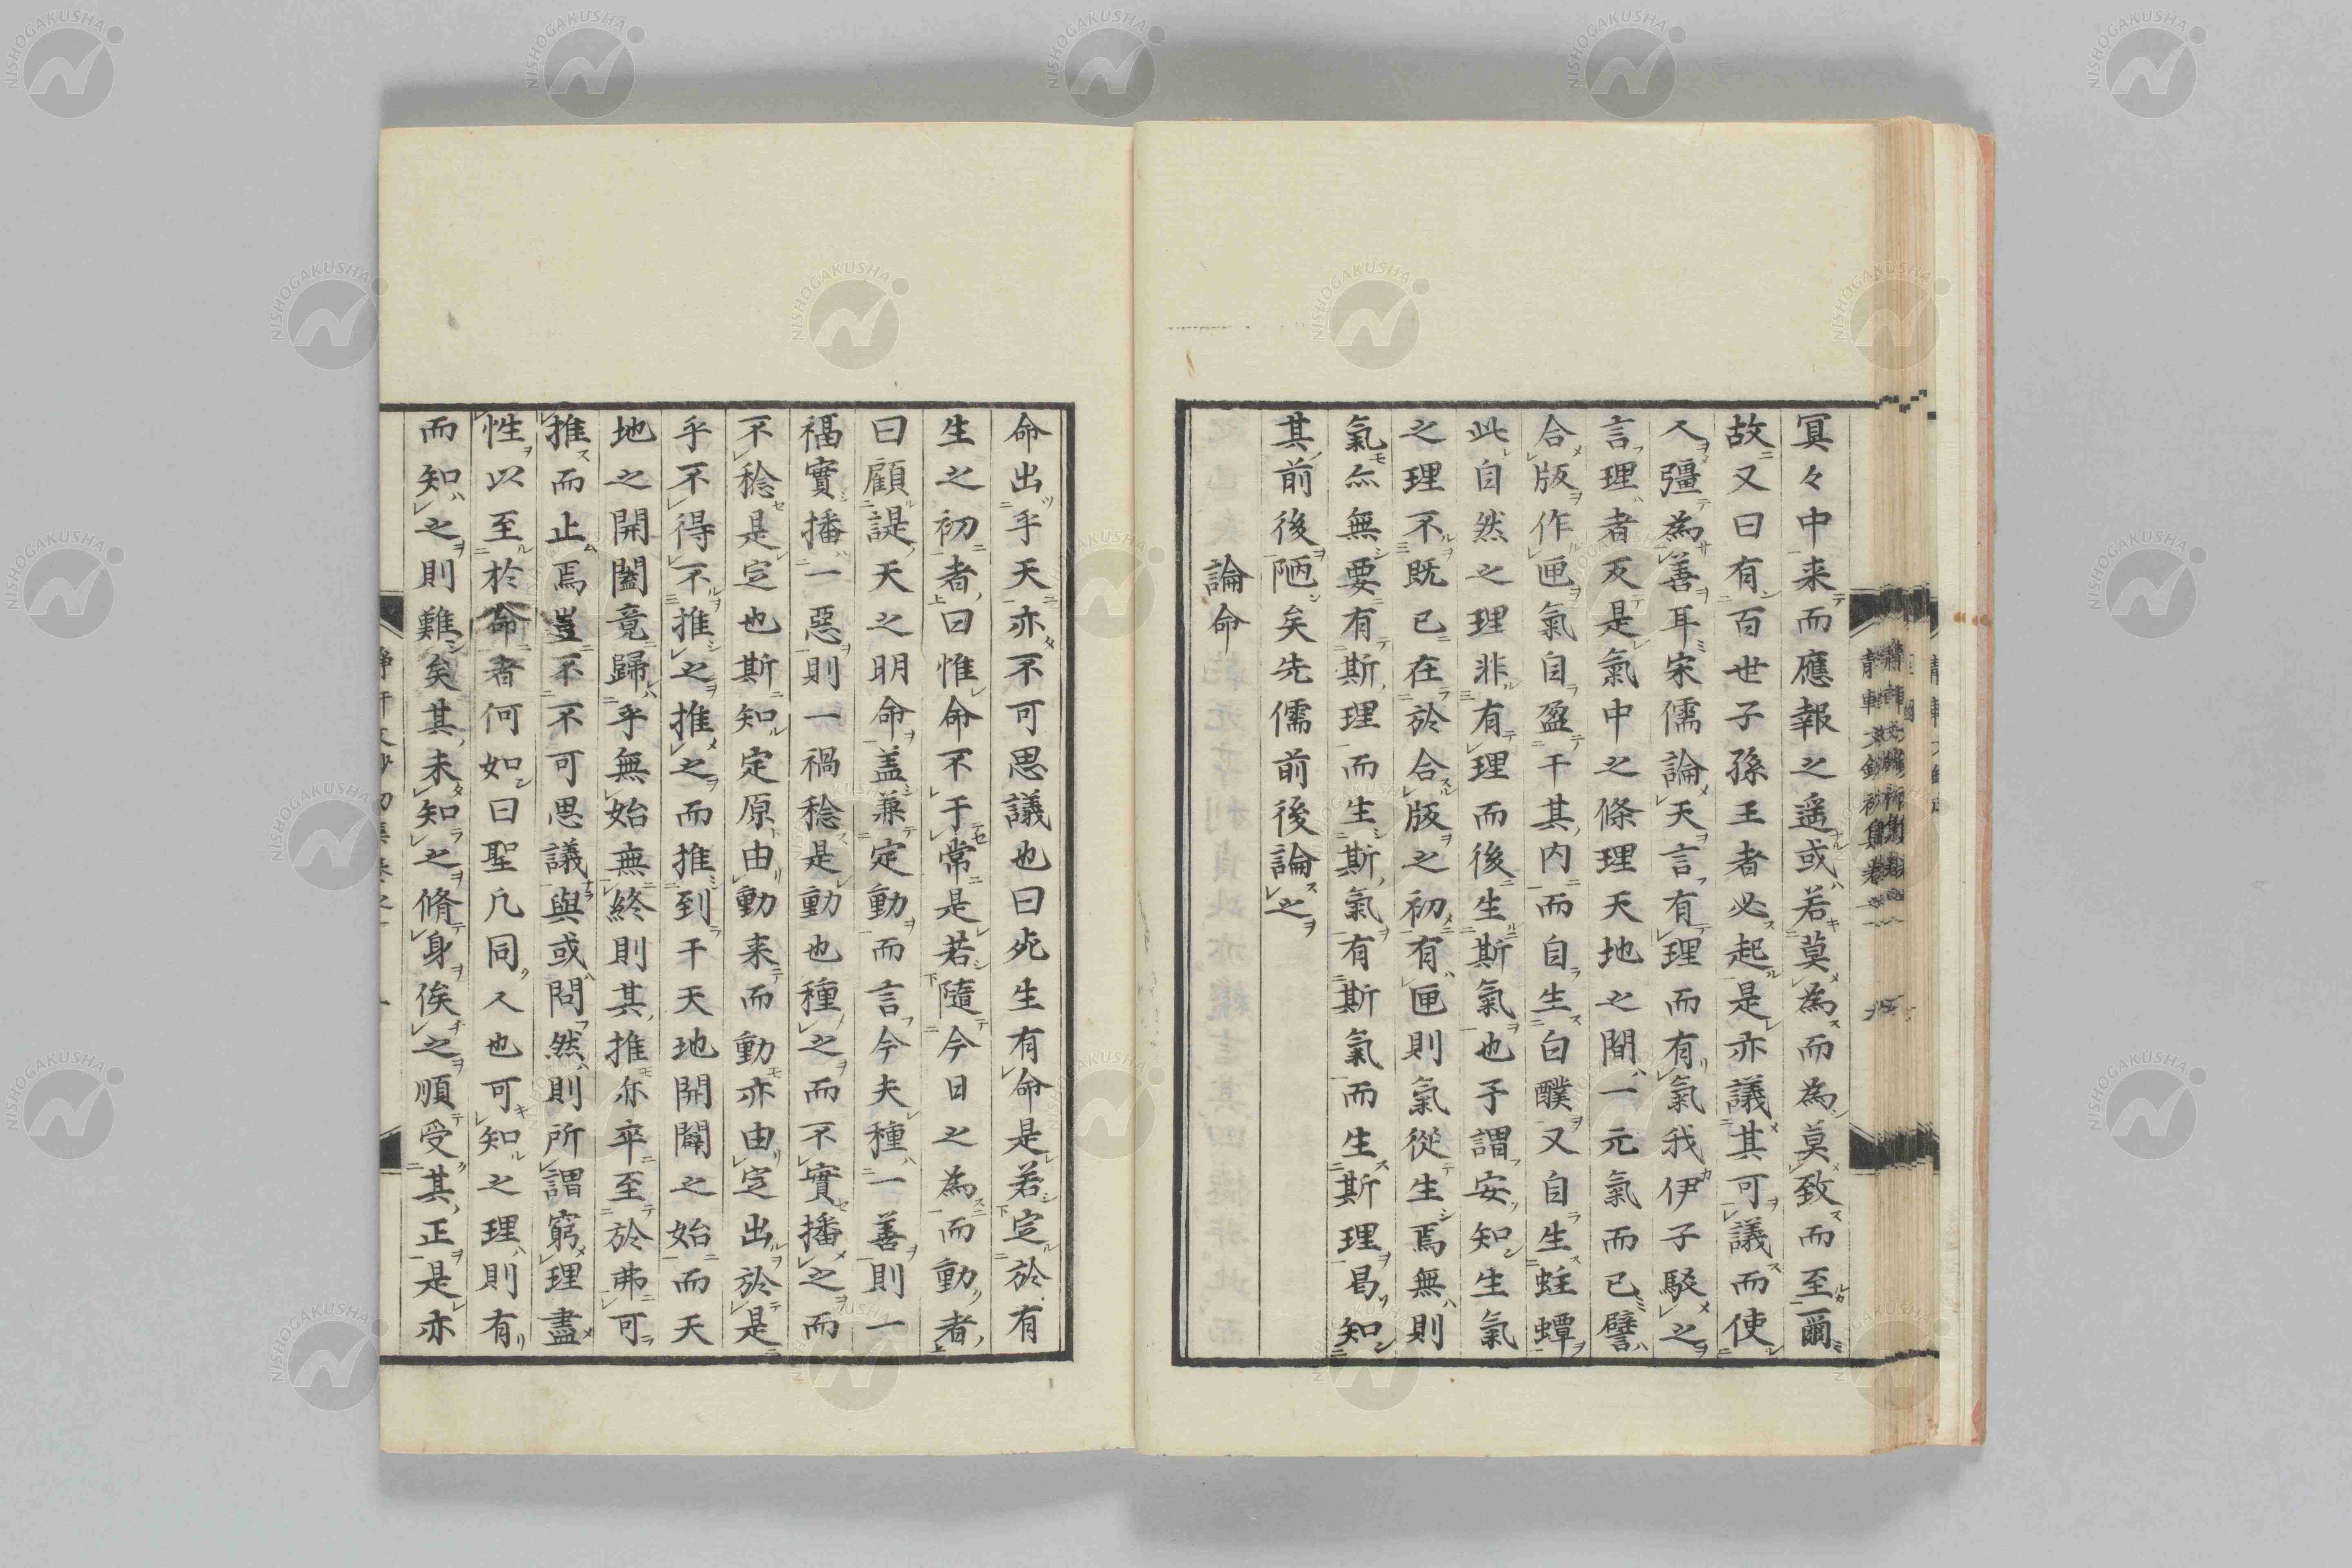 冥々中来而應報之遥或若莫為而為莫致而至爾
故又曰有百世子孫王者必起是亦議其可議而使
人彊為善耳宋儒論天言有理而有氣我伊子駁之
言理者反是氣中之條理天地之間一元氣而已譬
合版作匣氣自盈于其内而自生白醭又自生蛀蟫
此自然之理非有理而後生斯氣也子謂安知生氣
之理不既已在於合版之初有匣則氣從生焉無則
氣亦無要有斯理而生斯氣有斯氣而生斯理曷知
其前後陋矣先儒前後論之
論命
命出乎天亦不可思議也曰死生有命是若定於有
生之初者曰惟命不于常是若隨今日之為而動者
曰顧諟天之明命蓋兼定動而言今夫種一善則一
福實播一惡則一禍稔是動也種之而不實播之而
不稔是定也斯知定原由動来而動亦由定出於是
乎不得不推之推之而推到于天地開闢之始而天
地之開闔竟歸乎無始無終則其推亦卒至於弗可
推而止焉豈不不可思議與或問然則所謂窮理盡
性以至於命者何如曰聖凡同人也可知之理則有
而知之則難矣其未知之脩身俟之順受其正是亦
NISHOGAKUSHA